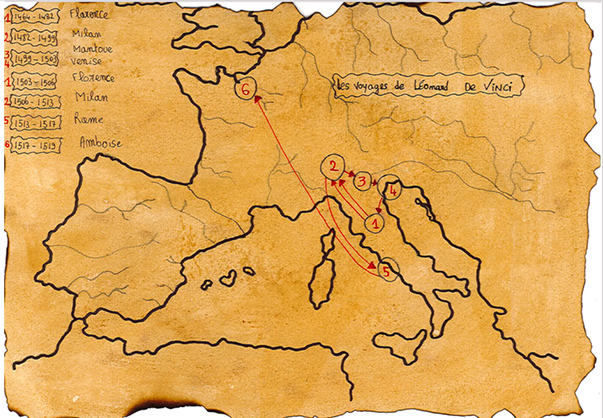 1 1464-1482 Florence
2 1482-1499 Milan
3 Mantoue
4 1499-1503 Venise
1 1503-1506 Florence
2 1506-1513 Milan
5 1513-1517 Rome
6 1517-1519 Amboise
Les voyages de Léonard De Vinci
6
2
3
4
1
5